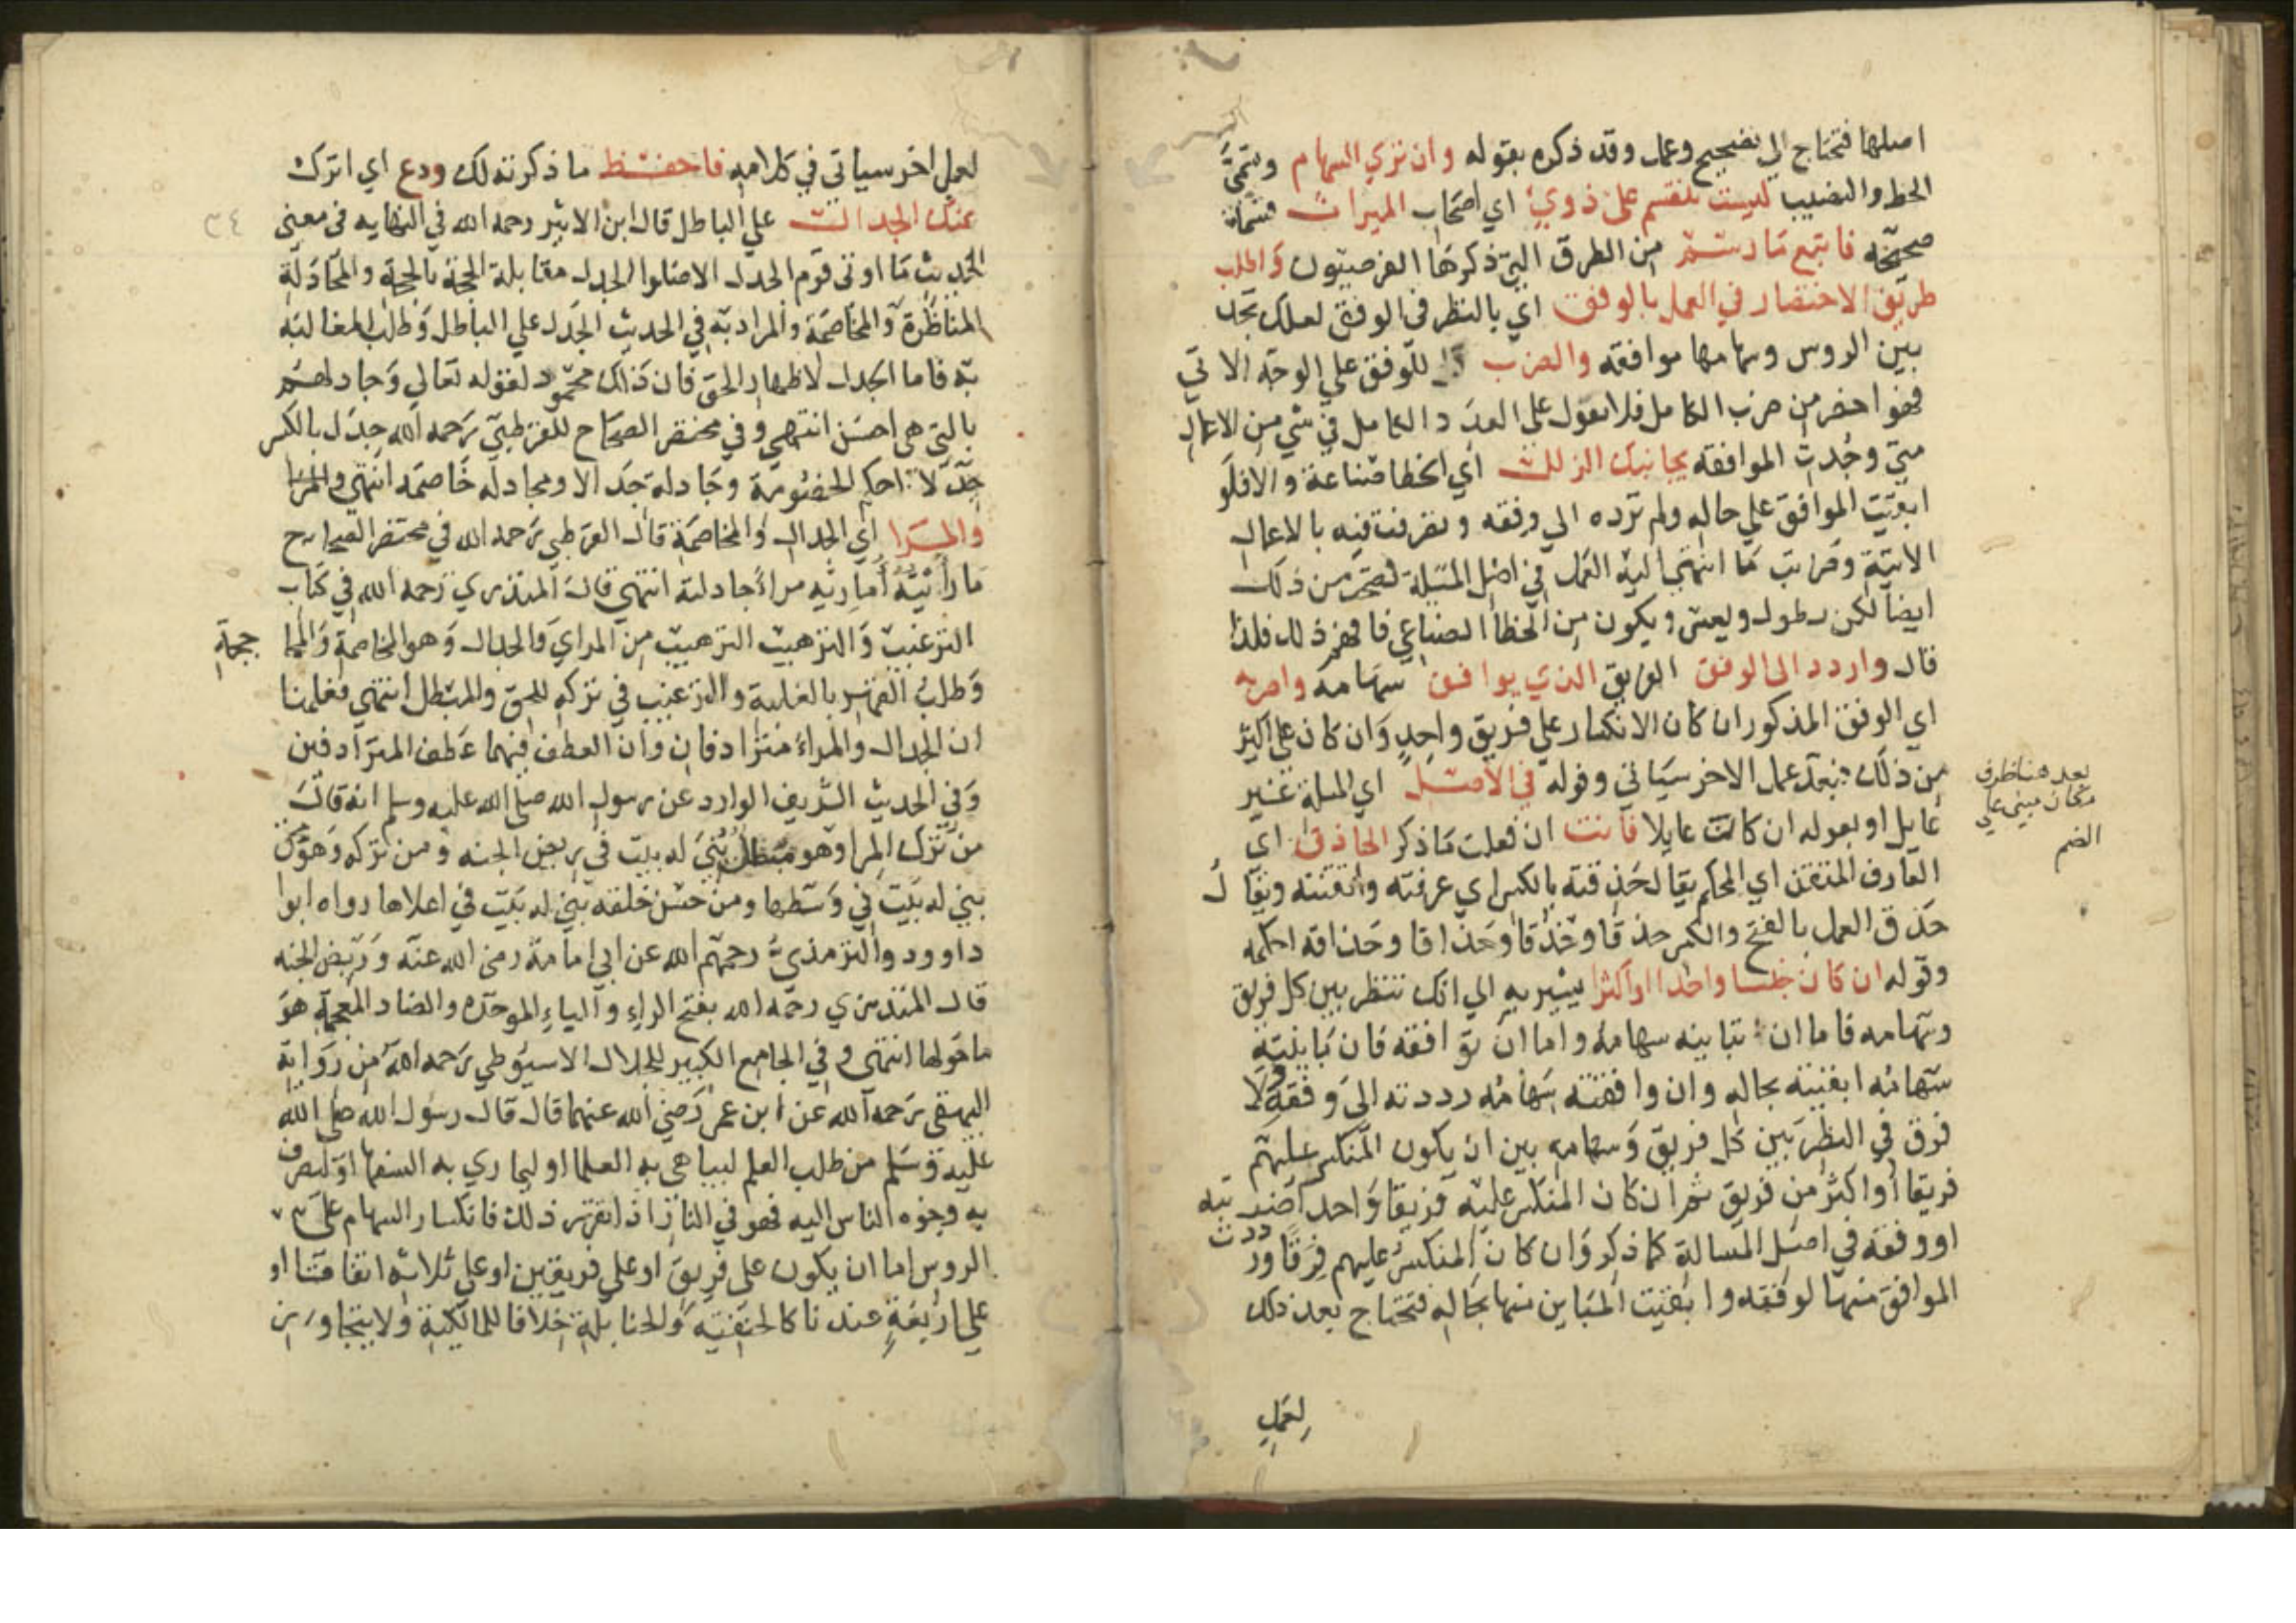 اصلها فتحتاج الي تصحيح وعمل وقد ذكره بقوله وان تري السهام وتسمي
الحظ والنصيب ليست تنقسم على ذوي اي اصحاب الميراث قسمة
صحيحة فاتبع ما رسم من الطرق التي ذكرها الفرضيون واطلب
طريق الاختصار في العمل بالوفق اي بالنظر في الوفق لعلك تجد
بين الروس وسهامها موافقه والضرب للوفق علي الوجه الاتي
فهو اخصر من ضرب الكامل فلا تعول على العدد الكامل في شي من الاعمال
متي وجدت الموافقه يجانبك الزلل اي الخطا صناعة والا فلو
ابقيت الموافق علي حاله ولم ترده الي وفقه وتصرفت فيه بالاعمال
الاتية وضربت ما انتهي اليه العمل في اصل المسئلة لصحت من ذلك
ايضا لكن يطول ويعسر ويكون من الخطا الصناعي فافهم ذلك فلذا
قال واردد الى الوفق الفريق الذي يوافق سهامه واضربه
اي الوفق المذكور ان كان الانكسار علي فريق واحد وان كان علي اكثر
من ذلك فبعد عمل الاخر سياتي وقوله في الاصل اي المسلة غير
عايل او بعوله ان كانت عايلا فانت ان فعلت ما ذكر الحاذق اي
العارف المتقن اي المحكم يقال حذقته بالكسر اي عرفته واتقنته ويقال
حذق العمل بالفتح والكسر حذقا وحذقا وحذاقا وحذاقه احكمه
وقوله ان كان جنسا واحدا او اكثرا يشير به الي انك تنظر بين كل فريق
وسهامه فاما ان تباينه سهامه واما ان توافقه فان باينته
سهامه ابقيته بحاله وان وافقته سهامه رددته الي وفقه ولا
فرق في النظر بين كل فريق وسهامه بين ان يكون المنكسر عليهم
فريقا او اكثر من فريق ثم ان كان المنكسر عليه فريقا واحدا ضربته
او وفقه في اصل المسالة كما ذكر وان كان المنكسر عليهم فرقا ورددت
الموافق منها لوفقه وابقيت المباين منها بحاله فتحتاج بعد ذلك
لعمل
بعد هنا ظرف
مكان مبني علي
الضم
لعمل اخر سياتي في كلامه فاحفظ ما ذكرته لك ودع اي اترك
عنك الجدال علي الباطل قال ابن الاثير رحمه الله في النهايه في معني
الحديث ما اوتي قوم الجدل الا ضلوا الجدل مقابلة الحجة بالحجة والمجادلة
المناظرة والمخاصمة والمراد به في الحديث الجدل علي الباطل وطلب المغالبة
به فاما الجدل لاظهار الحق فان ذلك محمود لقوله تعالي وجادلهم
بالتي هي احسن انتهي وفي مختصر الصحاح للقرطبي رحمه الله جدل بالكسر
جدلا احكم الخصومة وجادله جدالا ومجادلة خاصمه انتهي والمرا
والمرا اي الجدال والمخاصمة قال القرطبي رحمه الله في مختصر الصحاح
ماراً يته اماريه مراء جادلته انتهي قال المنذري رحمه الله في كتاب
الترغيب والترهيب الترهيب من المراي والجدال وهو المخاصمة والمحا
ججة
وطلب القهر بالغلبة والترغيب في تركه للمحق والمبطل انتهي فعلمنا
ان الجدال والمراء مترادفان وان العطف فيهما عطف المترادفين
وفي الحديث الشريف الوارد عن رسول الله صلي الله عليه وسلم انه قال
من ترك المرا وهو مبطل بني له بيت في ربض الجنه ومن تركه وهو محق
بني له بيت في وسطها ومن حسن خلقه بني له بيت في اعلاها رواه ابوا
داوود والترمذي رحمهم الله عن ابي امامة رضي الله عنه وربض الجنه
قال المنذري رحمه الله بفتح الراء والباء الموحده والضاد المعجمة هو
ما حولها انتهي وفي الجامع الكبير للجلال الاسيوطي رحمه الله من رواية
البيهقي رحمه الله عن ابن عمر رضي الله عنهما قال قال رسول الله صلي الله
عليه وسلم من طلب العلم ليباهي به العلما او ليماري به السفها او ليصرف
به وجوه الناس اليه فهو في النار اذا تقرر ذلك فانكسار السهام علي
الروس اما ان يكون علي فريق او علي فريقين او علي ثلاثه اتفاقا او
علي اربعة عندنا كالحنفية والحنابلة خلافا للمالكية ولا يتجاوزن
٣٤